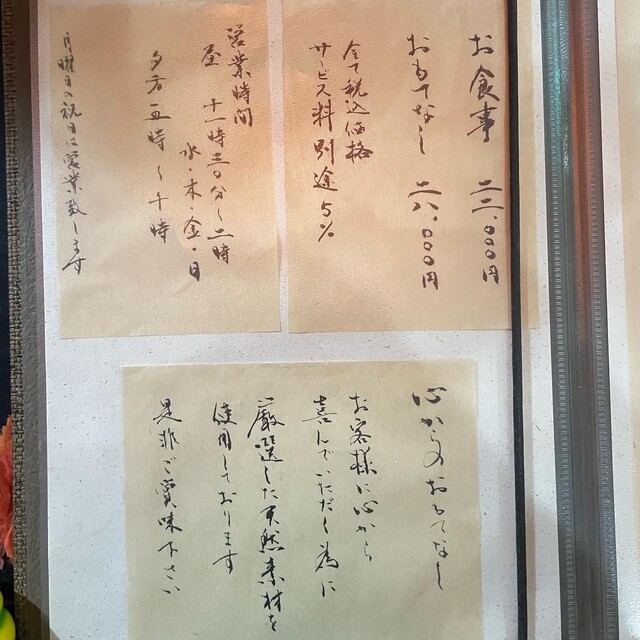 お食事 二二、〇〇〇円
おもてなし 二八、〇〇〇円
全て税込価格
サービス料別途5%
営業時間
昼 十一時三〇分〜二時
水・木・金・日
夕方 五時〜十時
月曜日の祝日は営業致します
心からのおもてなし
お客様に心から
喜んでいただく為に
厳選した天然素材を
使用しております
是非ご賞味下さい